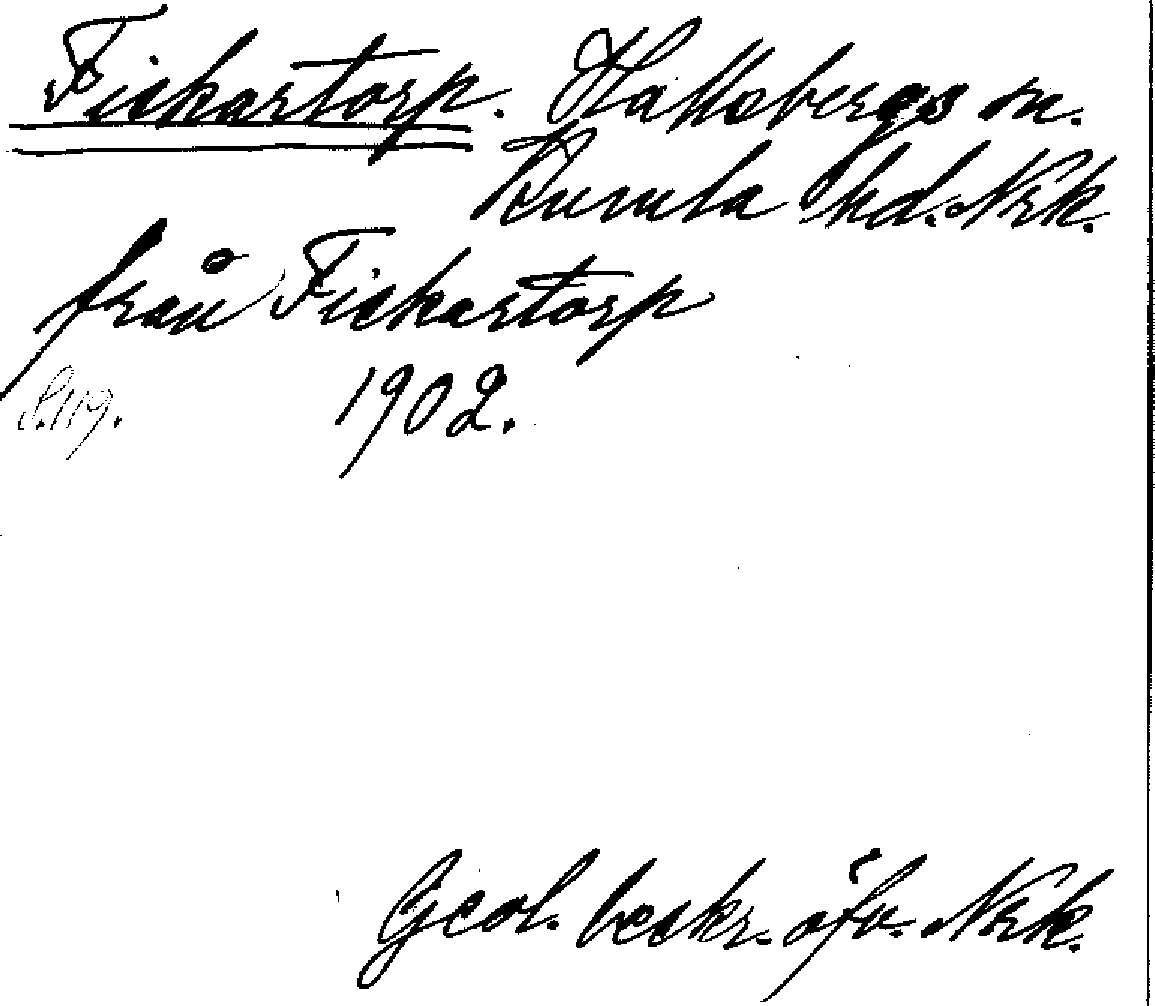 Fiskartorp. Hallsbergs sn.
Kumla hd. Nrk.
från Fiskartorp
S.119. 1902.
Geol. beskr. öfv. Nrk.